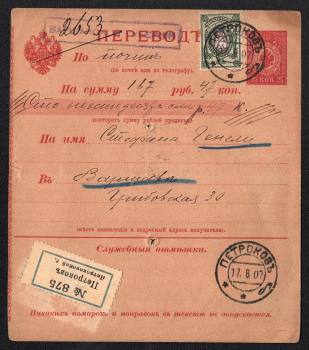 2653
ПЕРЕВОДЪ
По почтѣ
(по почтѣ или по телеграфу).
На сумму 167 руб. 47 коп.
Сто шестьдесятъ сем р. 47 к.
(повторить сумму рублей прописью).
На имя Стефана
Въ Варшава
Грибовская 30
(мѣсто назначенія и подробный адресъ получателя).
Служебныя отмѣтки.
ПЕТРОКОВЪ
07
ПЕТРОКОВЪ
17. 8. 07
№ 875
Петроковъ
Петроковской г.
Никакихъ помарокъ и поправокъ въ текстѣ не допускается.
25 КОП. 25